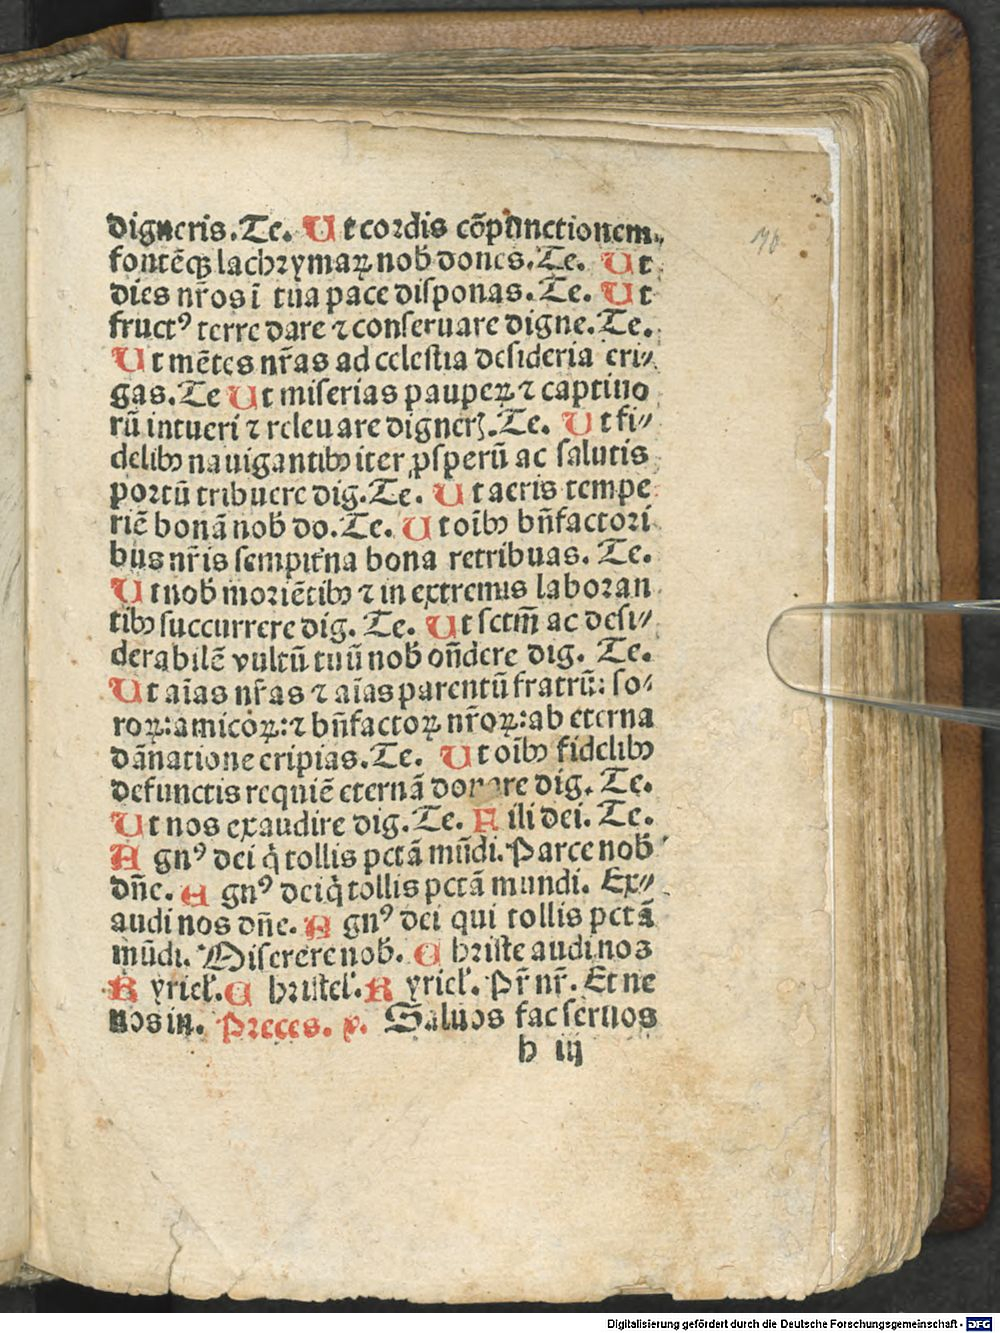 digneris. Te. Ut cordis cōpunctionem
fontēq; lachrymaꝝ nob̄ dones. Te. Ut
dies nr̄os ī tua pace disponas. Te. Ut
fructꝰ terre dare ⁊ conseruare digne. Te.
Ut mētes nr̄as ad celestia desideria eri⸗
gas. Te Ut miserias paupeꝝ ⁊ captiuo
rū intueri ⁊ releuare digner̄. Te. Ut fi⸗
delibꝰ nauigantibꝰ iter ꝓsperū ac salutis
portū tribuere dig. Te. Ut aeris tempe
riē bonā nob̄ do. Te. Ut oībꝰ bn̄factori
bus nr̄is sempit'na bona retribuas. Te.
Ut nob̄ moriētibꝰ ⁊ in extremis laboran
tibꝰ succurrere dig. Te. Ut sctm̄ ac desi⸗
derabilē vultū tuū nob̄ on̄dere dig. Te.
Ut aīas nr̄as ⁊ aīas parentū fratrū: so⸗
roꝝ: amicoꝝ: ⁊ bn̄factoꝝ nr̄oꝝ: ab eterna
dānatione eripias. Te. Ut oībꝰ fidelibꝰ
defunctis requiē eternā donare dig. Te.
Ut nos exaudire dig. Te. Fili dei. Te.
Agnꝰ dei q̄ tollis pctā mūdi. Parce nob̄
dn̄e. Agnꝰ dei q̄ tollis pctā mundi. Ex⸗
audi nos dn̄e. Agnꝰ dei qui tollis pctā
mūdi. Miserere nob̄. Christe audi nos
Kyriel'. Christel'. Kyriel'. Pr̄ nr̄. Et ne
nos in. Preces. v. Saluos fac seruos
h iij
Digitalisierung gefördert durch die Deutsche Forschungsgemeinschaft - DFG